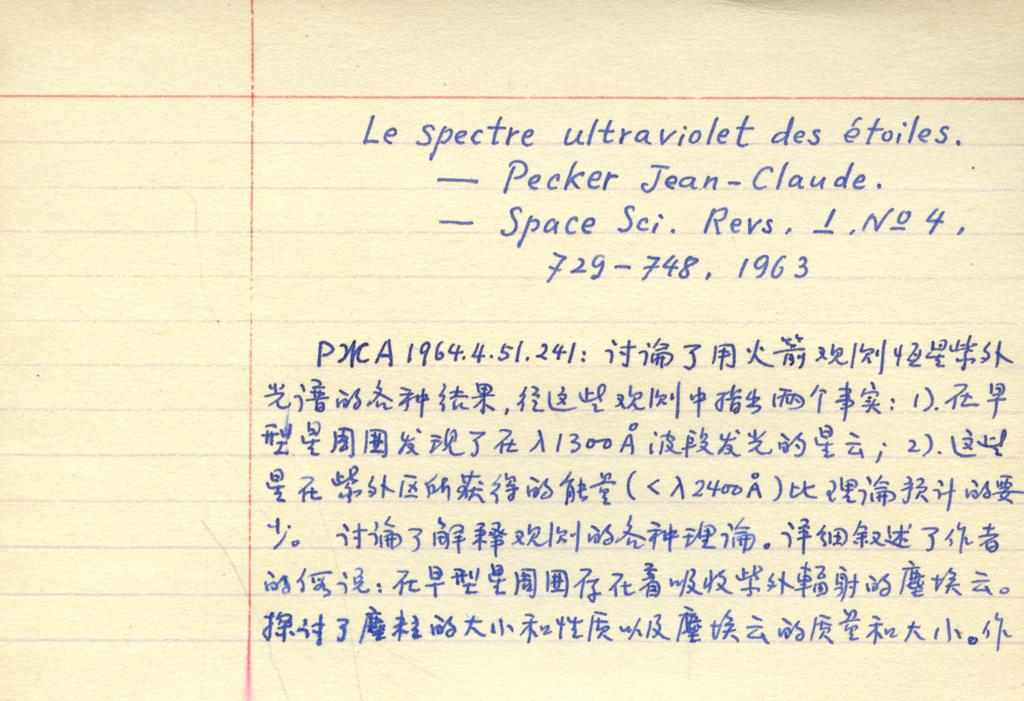 Le spectre ultraviolet des étoiles.
— Pecker Jean-Claude.
— Space Sci. Revs. 1, № 4,
729-748, 1963
РЖА 1964.4.51.241: 讨论了用火箭观测恒星紫外
光谱的各种结果,从这些观测中指出两个事实: 1).在早
型星周围发现了在λ1300Å波段发光的星云; 2).这些
星在紫外区所获得的能量(<λ2400Å)比理论预计的要
少。 讨论了解释观测的各种理论。详细叙述了作者
的假说:在早型星周围存在着吸收紫外辐射的尘埃云。
探讨了尘粒的大小和性质以及尘埃云的质量和大小。作